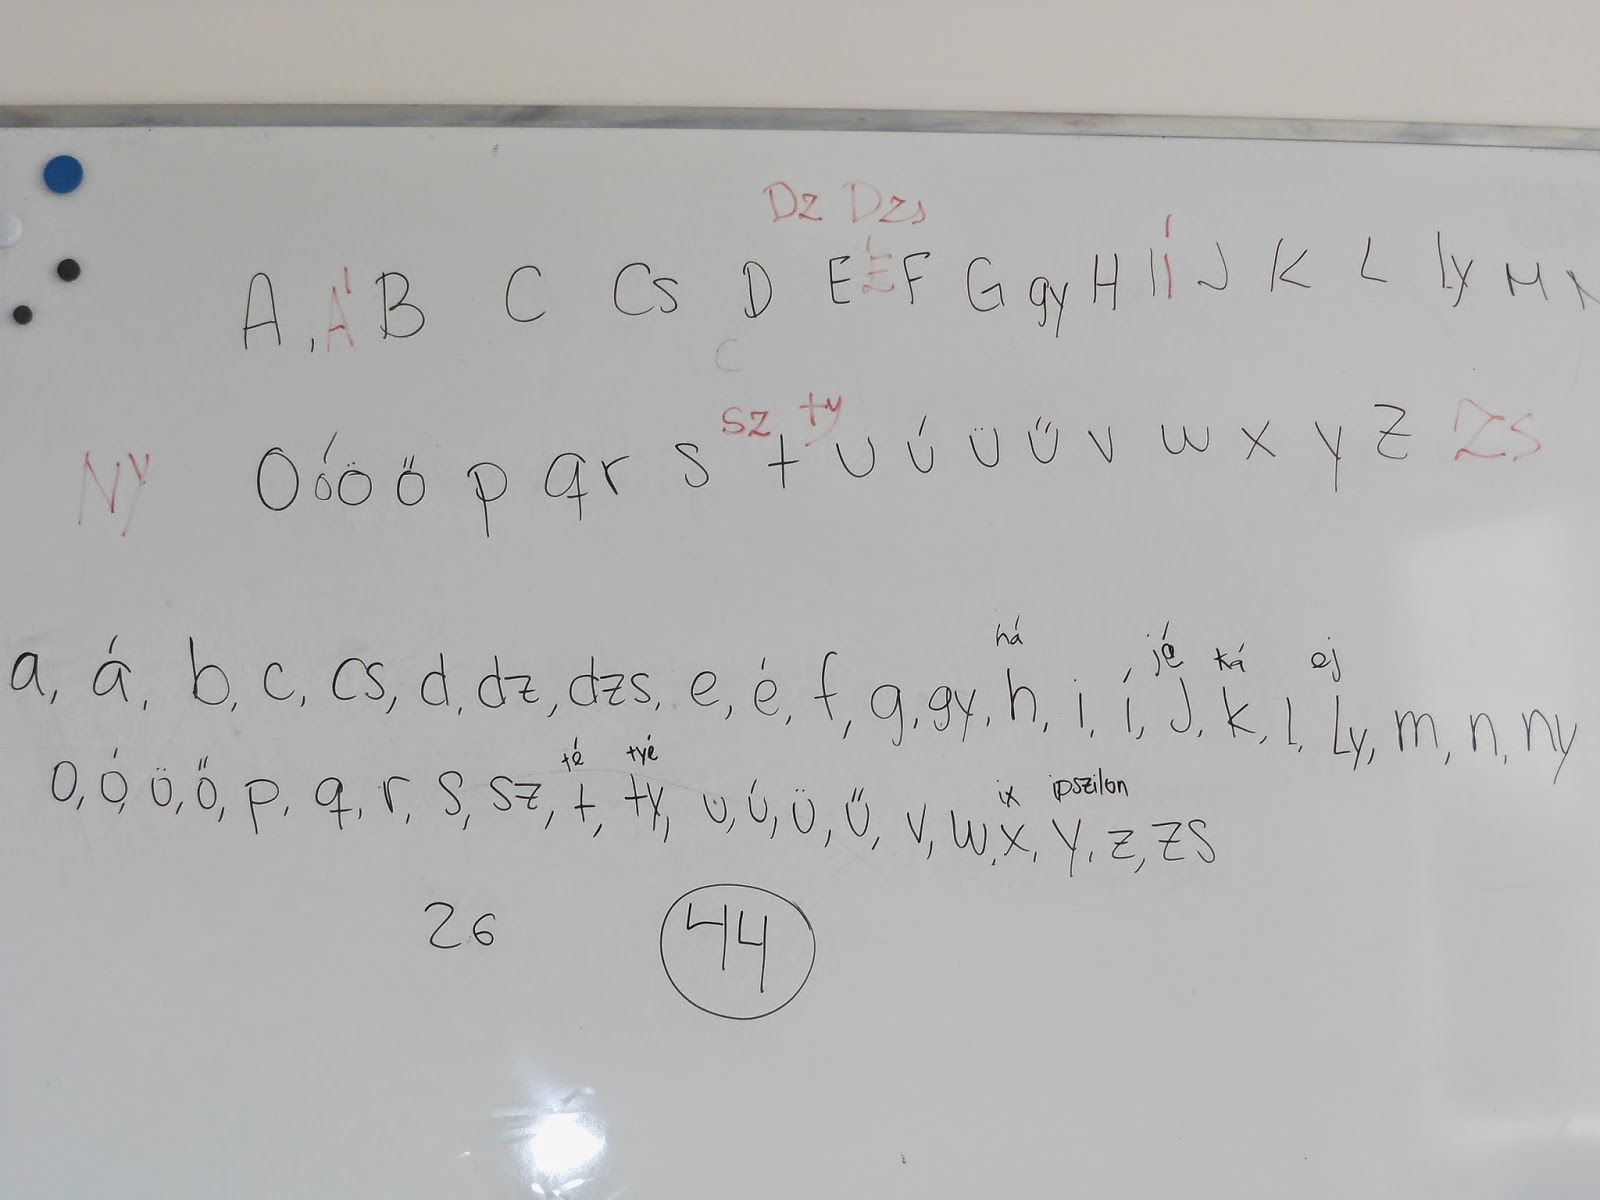 Dz Dzs
A, Á B C Cs D E É F G gy H I Í J K L ly M N
C
sz ty
Ny O ó ö ő p q r s t u ú ü ű v w x y z Zs
há jé ká ej
a, á, b, c, cs, d, dz, dzs, e, é, f, g, gy, h, i, í, J, k, l, Ly, m, n, ny
té tyé ix ipszilon
o, ó, ö, ő, p, q, r, s, sz, t, ty, u, ú, ü, ű, v, w, x, y, z, zs
26 44